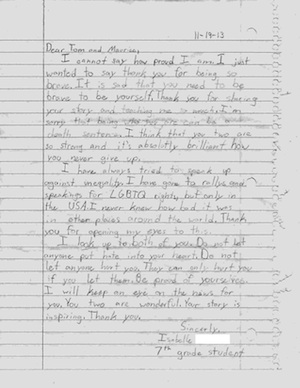 11-19-13
Dear Tom and Maurice,
I cannot say how proud I am. I just
wanted to say thank you for being so
brave. It is sad that you need to be
brave to be yourself. Thank you for sharing
your story and teaching me so much. I'm
sorry that being who you are can be a
death sentence. I think that you two are
so strong and it's absolutly brilliant how
you never give up.
I have always tried to speak up
against unequality. I have gone to rallys and
speakings for LGBTQ rights, but only in
the USA. I never knew how bad it was
in other places around the world. Thank
you for opening my eyes to this.
I look up to both of you. Do not let
anyone put hate into your heart. Do not
let anyone hurt you. They can only hurt you
if you let them. Be proud of yourselves.
I will keep an eye on the news for
you. You two are wonderful. Your story is
inspiring. Thank you.
Sincerly,
Isabelle
7th grade student